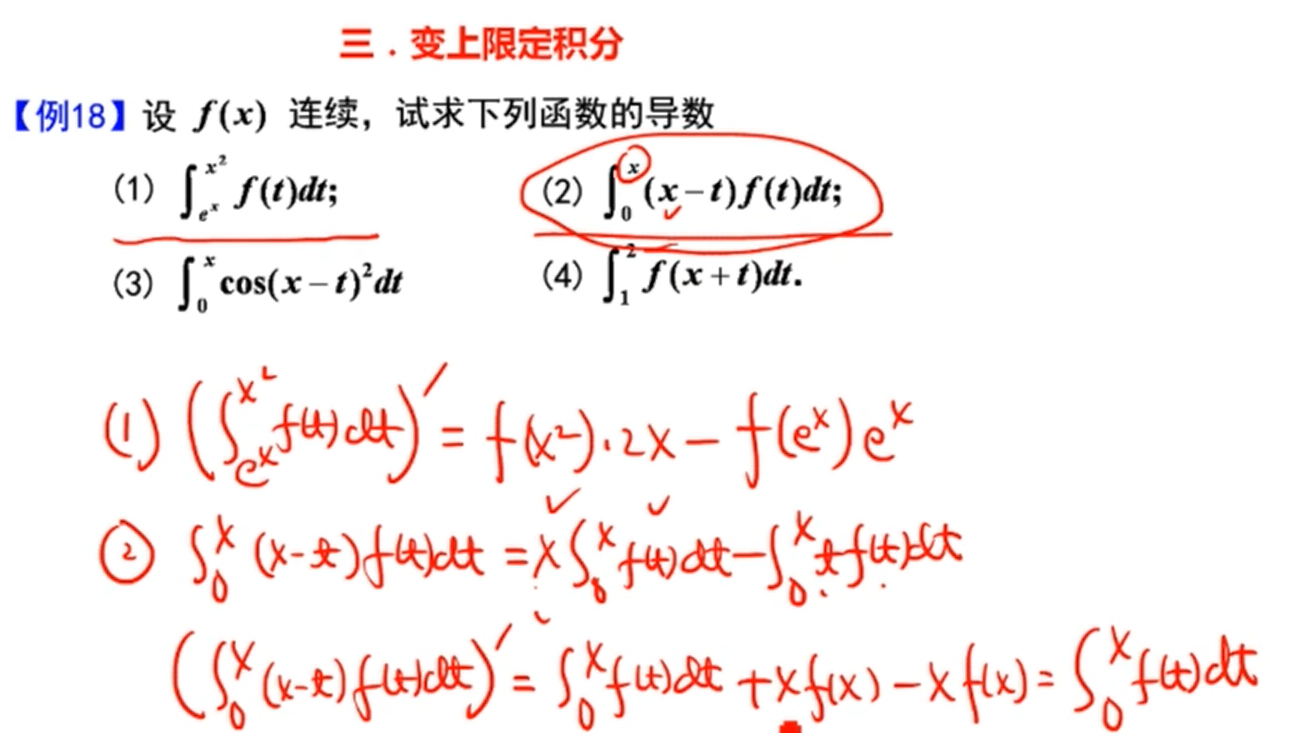 三．变上限定积分
【例18】设 f(x) 连续，试求下列函数的导数
(1) ∫_{e^x}^{x^2} f(t)dt; (2) ∫_0^x (x−t)f(t)dt;
(3) ∫_0^x cos(x−t)^2dt (4) ∫_1^2 f(x+t)dt.
(1) (∫_{e^x}^{x^2} f(t)dt)′ = f(x^2)·2x − f(e^x)e^x
② ∫_0^x (x-t)f(t)dt = x∫_0^x f(t)dt − ∫_0^x tf(t)dt
(∫_0^x (x-t)f(t)dt)′ = ∫_0^x f(t)dt + xf(x) − xf(x) = ∫_0^x f(t)dt